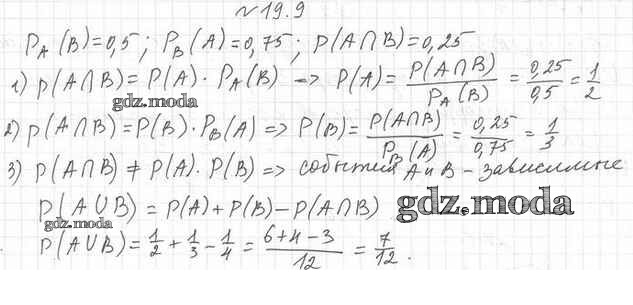 №19.9
P_A(B)=0,5; P_B(A)=0,75; P(A∩B)=0,25
1) P(A∩B)=P(A)·P_A(B) => P(A)= P(A∩B)/P_A(B) = 0,25/0,5 = 1/2
gdz.moda
2) P(A∩B)=P(B)·P_B(A) => P(B)= P(A∩B)/P_B(A) = 0,25/0,75 = 1/3
3) P(A∩B) ≠ P(A)·P(B) => события A и B - зависимые
P(A∪B) = P(A)+P(B)-P(A∩B)
gdz.moda
gdz.moda
P(A∪B)= 1/2 + 1/3 - 1/4 = (6+4-3)/12 = 7/12.